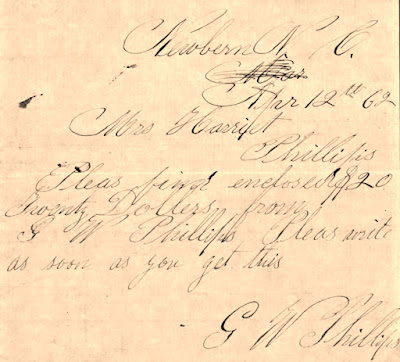 Newbern N. C.
Apr 12th 62
Mrs Harriet
Phillips
Pleas find enclosed $20
Twenty Dollers from
G W Phillips Pleas write
as soon as you get this
G W Phillips